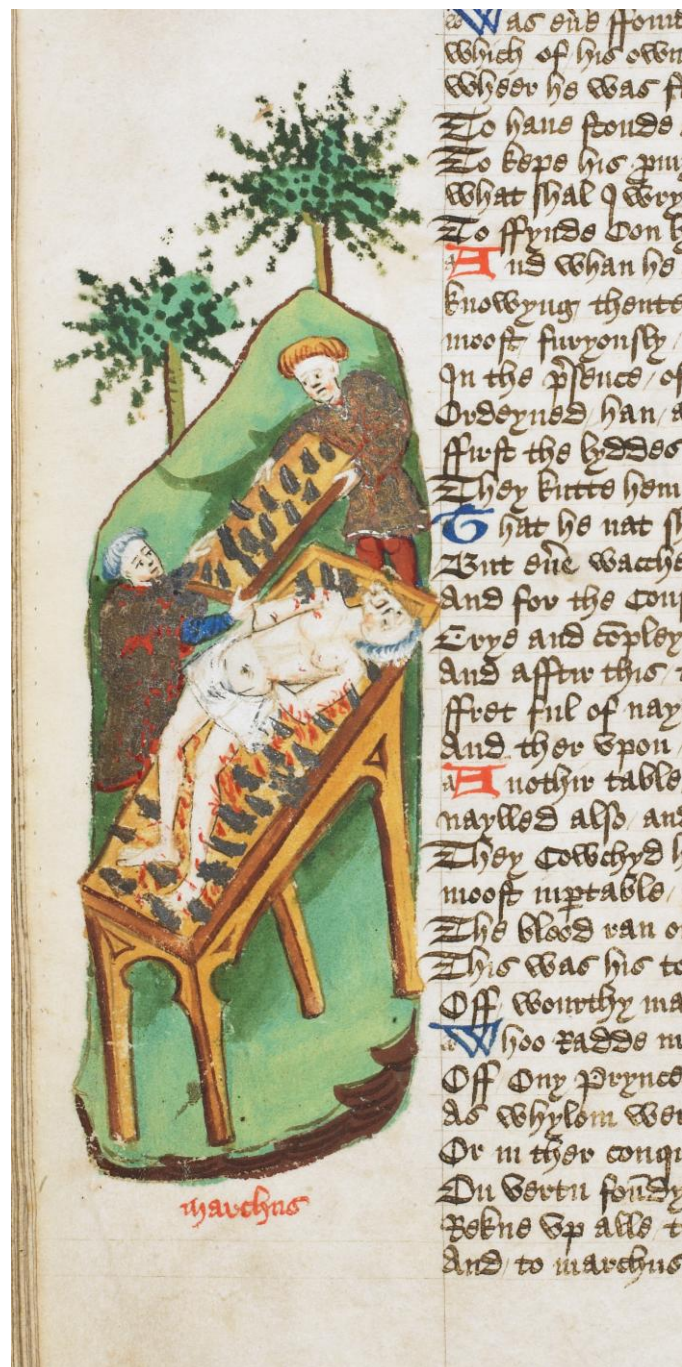 Was eũe ffound
which of his own
wheer he was
To haue stonde
To kepe his
what shal I wry
To ffynde Oon
And whan he
knowyng thente
moost furyously
In the p̃sence / of
Ordeyned / han / a
ffirst the lyddes
They kutte hem
That he nat sh
But eũe wacche
And for the Coun
Crye and cõpley
And afftir this /
ffret ful of nay
And ther vpon /
Anothir table
naylled also / and
They Cowchyd h
moost
The blood ran o
This was his to
Off wourthy ma
Whoo Radde
Off Ony Prynce
As whylom wer
Or in ther conqu
On vertu foũdy
Rekne vp alle / t
And / to marchus
marchus